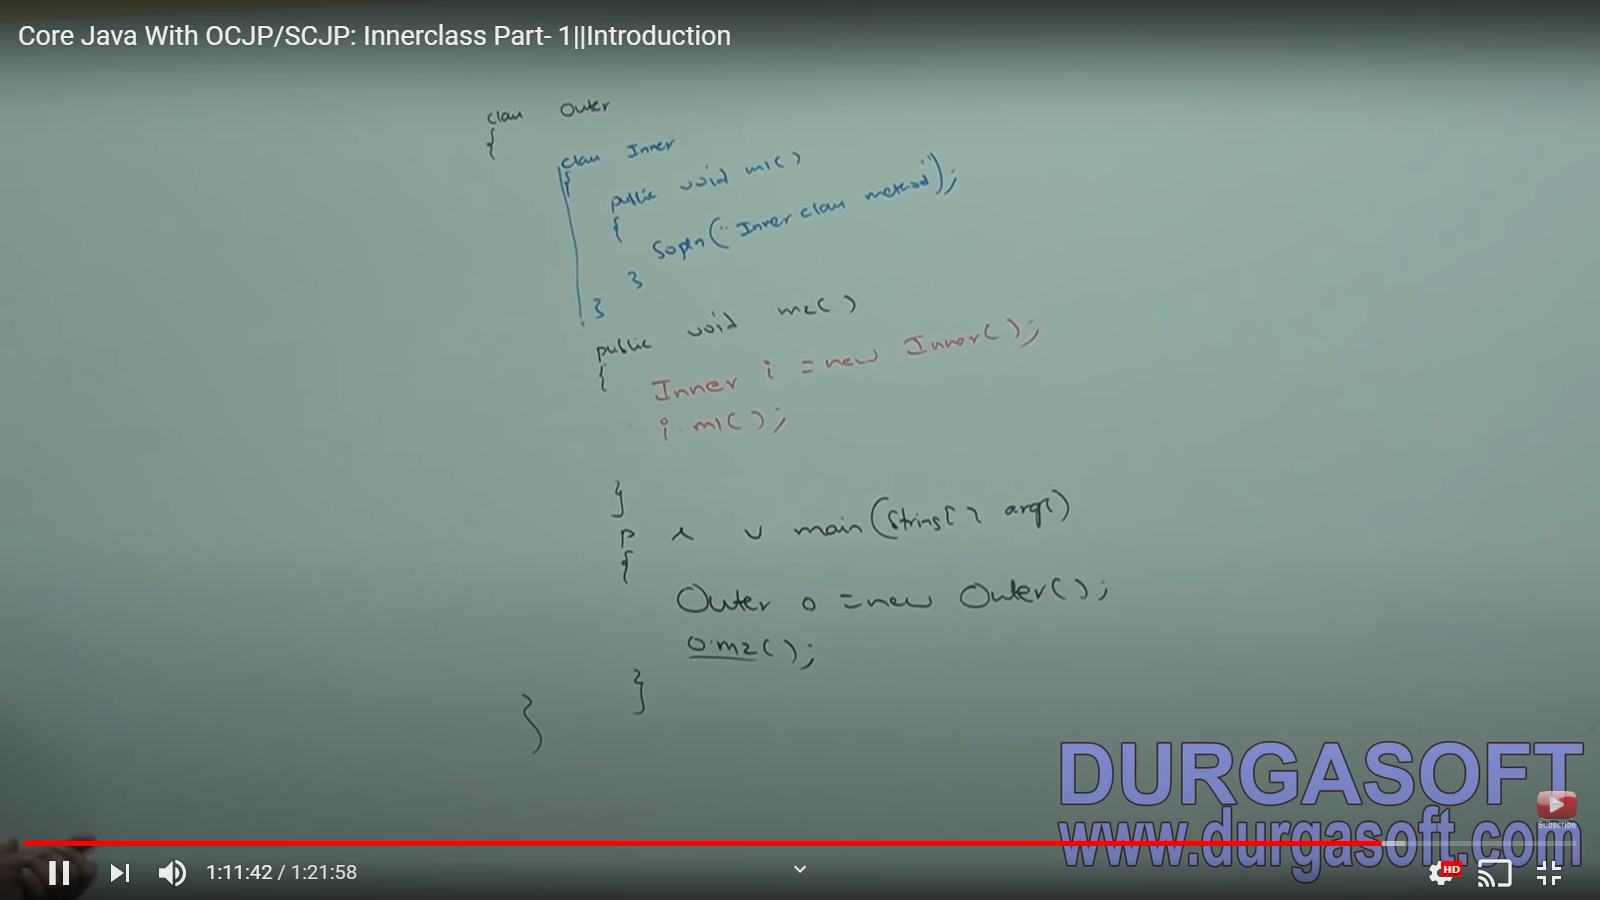 Core Java With OCJP/SCJP: Innerclass Part- 1||Introduction
class Outer
{
class Inner
{
public void m1()
{
Sopln("Inner class method");
}
}
public void m2()
{
Inner i = new Inner();
i.m1();
}
p s v main(String[] args)
{
Outer o = new Outer();
o.m2();
}
}
DURGASOFT
www.durgasoft.com
Subscribe
1:11:42 / 1:21:58
HD